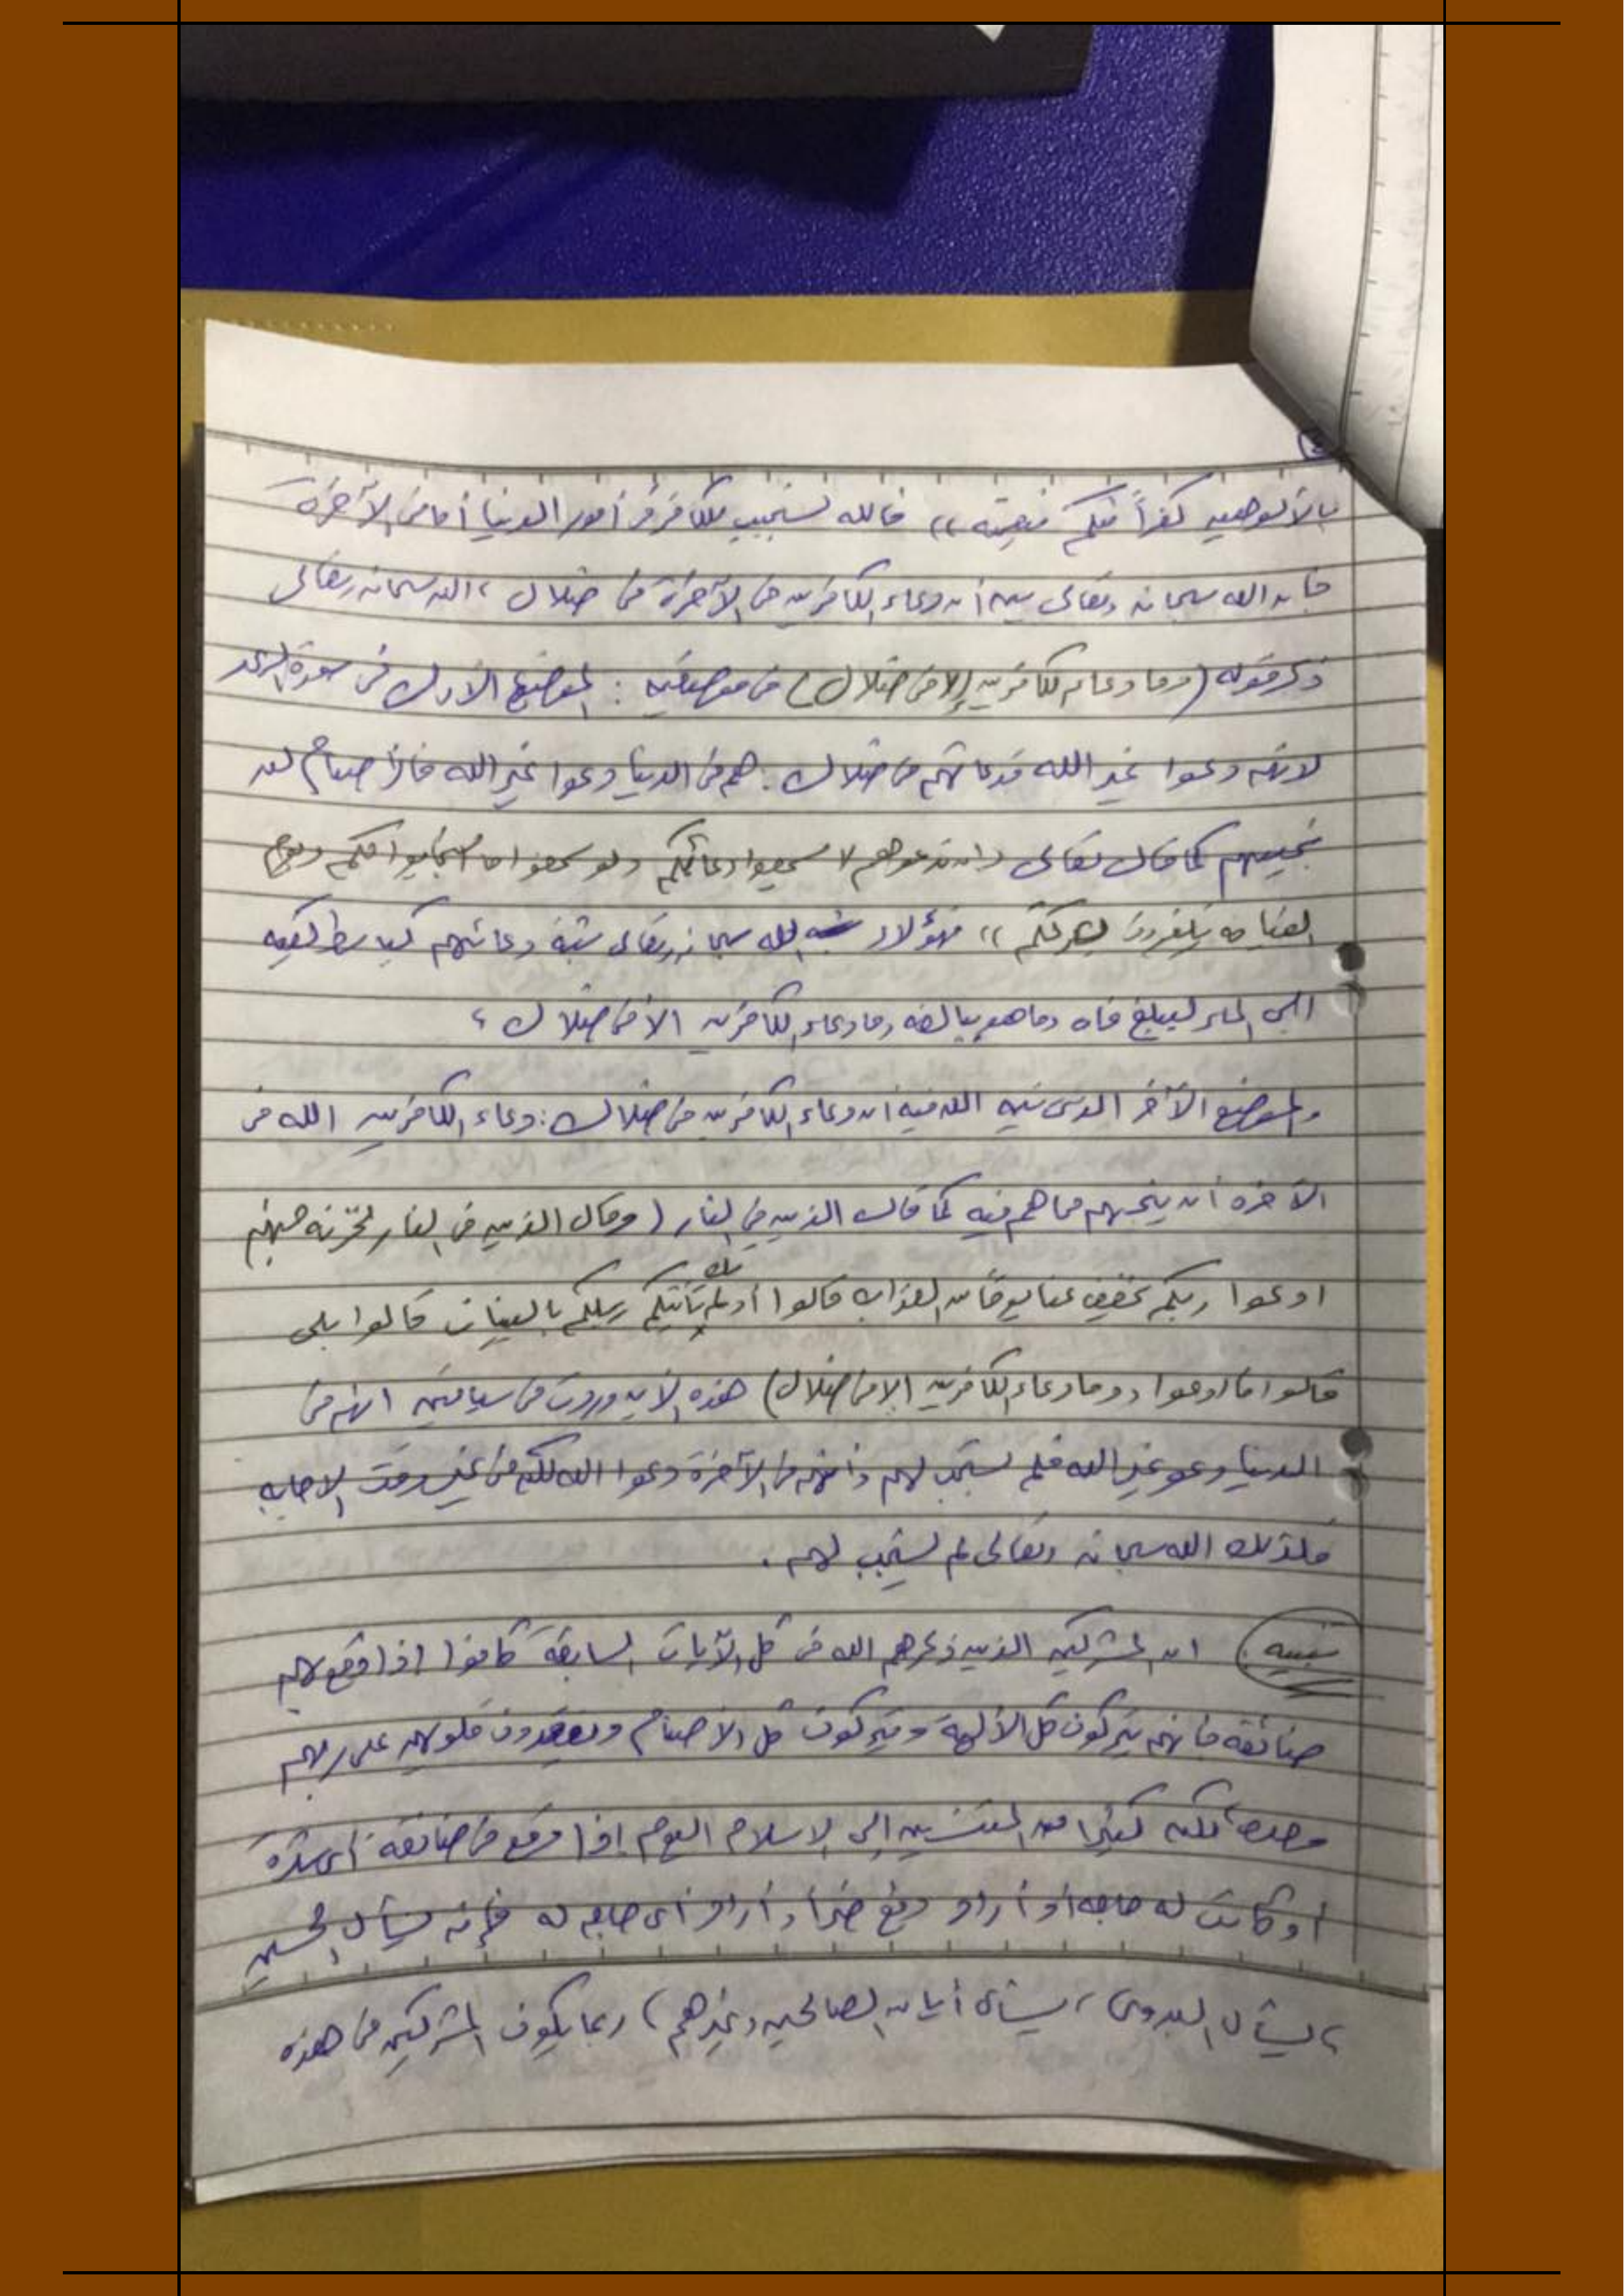 بالألوهيه كفراً منكم فيعينه )) فالله يستجيب للكافر في أمور الدنيا أما في الآخرة
فإن الله سبحانه وتعالى بين أن دعاء الكافرين في الآخرة في ضلال ، الله سبحانه وتعالى
ذكر قوله (وما دعاء الكافرين إلا في ضلال) في موضعين : الموضع الأول في سورة الرعد
لانهم دعوا غير الله فدعائهم في ضلال . هم في الدنيا دعوا غير الله فاذا صنام لن
تجيبهم كما قال تعالى (ان تدعوهم لا يسمعوا دعائكم ولو سمعوا ما استجابوا لكم ويوم
القيامه يكفرون بشرككم )) فهؤلاء الله سبحانه وتعالى شبه دعائهم كباسط كفيه
الى الماء ليبلغ فاه وما هو ببالغه وما دعاء الكافرين الا في ضلال ،
والموضع الآخر الذي بين الله فيه ان دعاء الكافرين في ضلال : دعاء الكافرين الله في
الآخره أن ينجيهم مما هم فيه كما قال الذين في النار ( وقال الذين في النار لخزنة جهنم
ادعوا ربكم يخفف عنا يوماً من العذاب قالوا أولم تك تأتيكم رسلكم بالبينات قالوا بلى
قالوا فادعوا وما دعاء الكافرين الا في ضلال) هذه الآيه وردت في سياقين انهم في
الدنيا دعو غير الله فلم يستجب لهم وأنهم في الآخرة دعوا الله لكن في غير وقت الاجابه
فلذلك الله سبحانه وتعالى لم يستجب لهم .
تنبيه ان المشركين الذين ذكرهم الله في كل الآيات السابقة كانوا إذا وقع لهم
ضائقه فإنهم يتركون كل الألهة ويتركون كل الأصنام ويعقدون قلوبهم على ربهم
وحده ، لكن كثيرا من المنتسبين إلى الإسلام اليوم إذا وقع في ضائقه أي شدة
أو كانت له حاجه أو أراد دفع ضر أو أراد أي حاجه له فإنه يسأل الحسين
، يسأل البدوي ، يسأل أيا من الصالحين وغيرهم ) ربما يكون المشركين في هذه